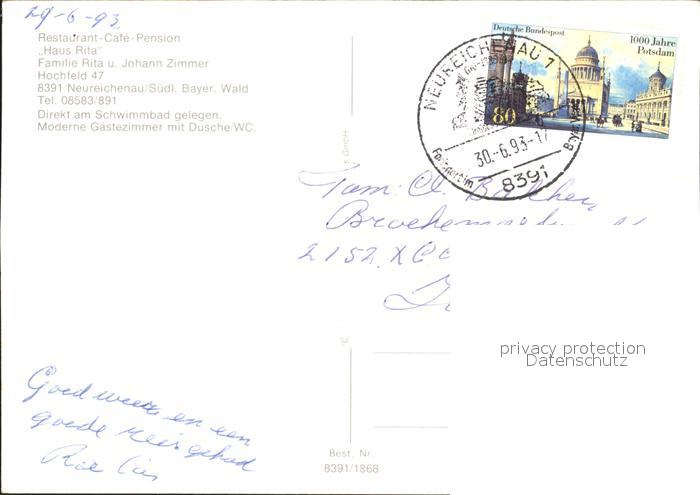 29-6-93
Restaurant-Café-Pension
„Haus Rita"
Familie Rita u. Johann Zimmer
Hochfeld 47
8391 Neureichenau/Südl. Bayer. Wald
Tel. 08583/891
Direkt am Schwimmbad gelegen.
Moderne Gästezimmer mit Dusche/WC.
Deutsche Bundespost
1000 Jahre
Potsdam
80
NEUREICHENAU 1
30.-6.93-17
8391
Bayer
GmbH
Fam.
2152 XC
privacy protection
Datenschutz
Goed weer en een
goede reis gehad
Best. Nr.
8391/1868